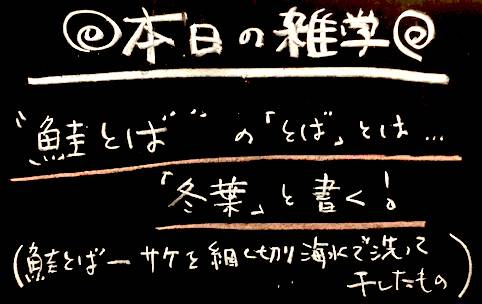 本日の雑学
"鮭とば"の「とば」とは…
「冬葉」と書く!
(鮭とばーサケを細く切り海水で洗って
干したもの)